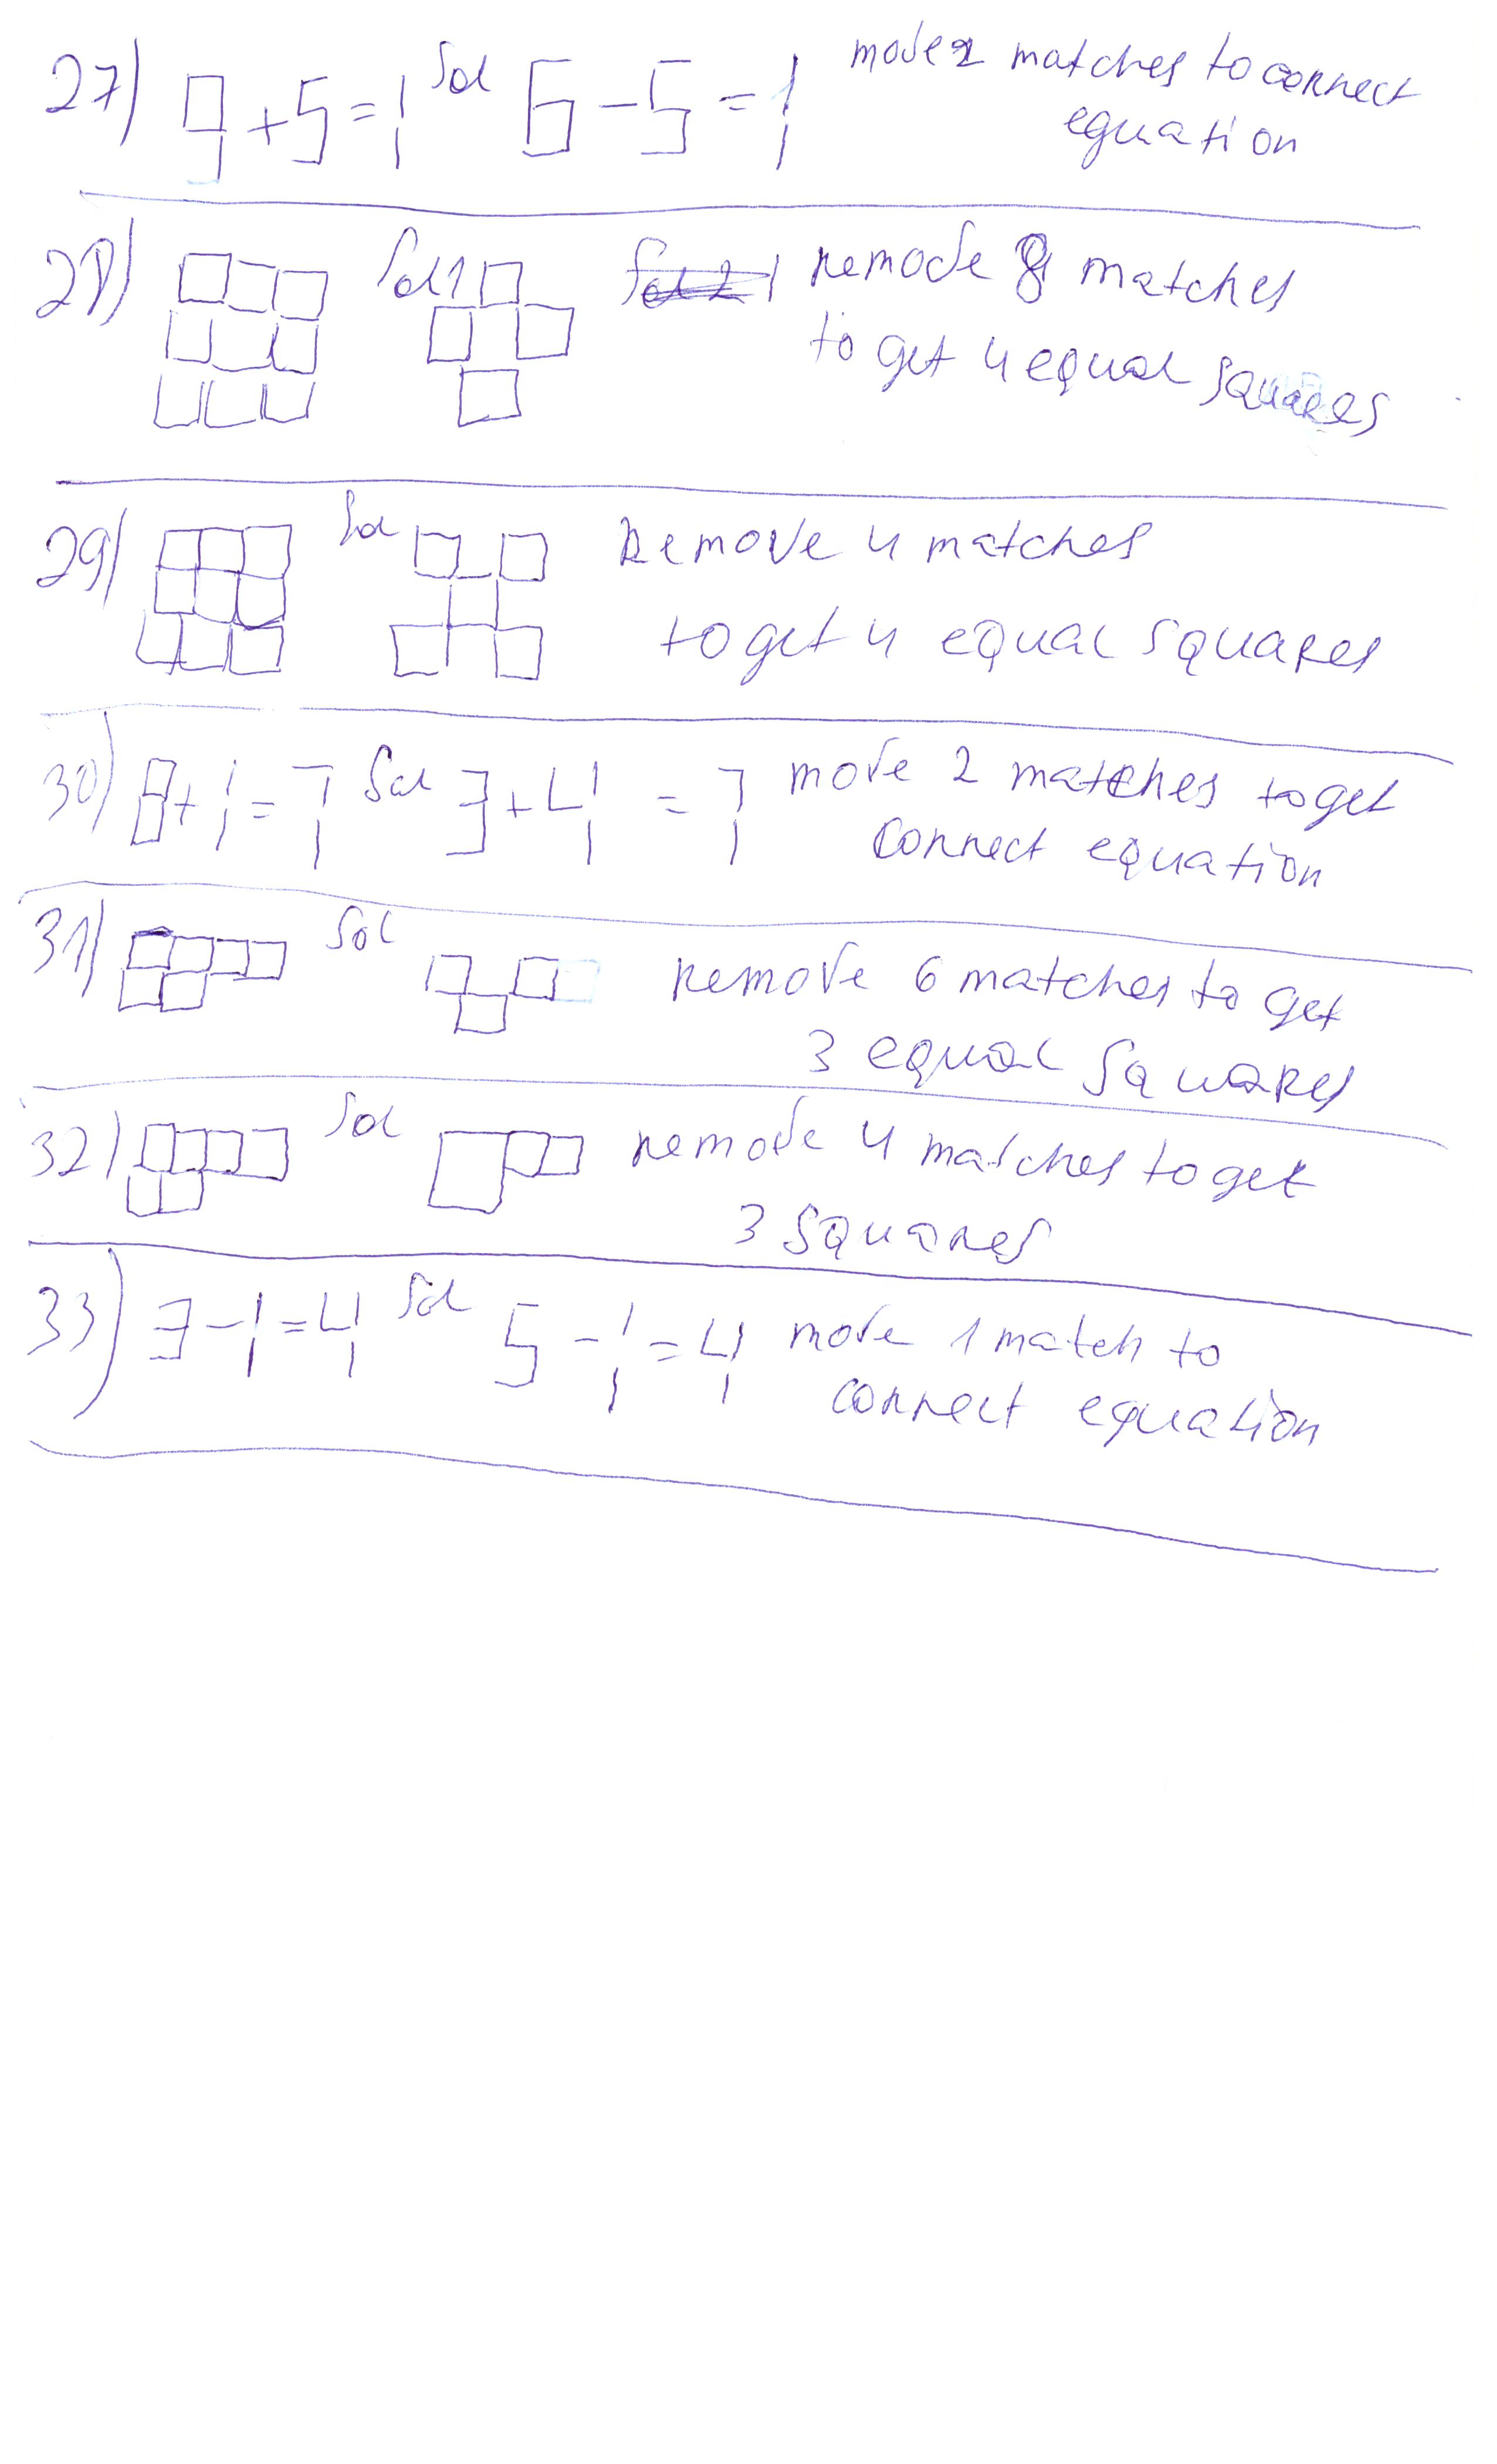 27) 9+5=1 Sol 6-5=1 move 2 matches to correct
equation
28) Sol1 remove 8 matches
to get 4 equal squares
29) Sol Remove 4 matches
to get 4 equal squares
30) 8+1=7 Sol 3+4=7 move 2 matches to get
correct equation
31) Sol remove 6 matches to get
3 equal squares
32) Sol remove 4 matches to get
3 squares
33) 3-1=4 Sol 5-1=4 move 1 match to
correct equation